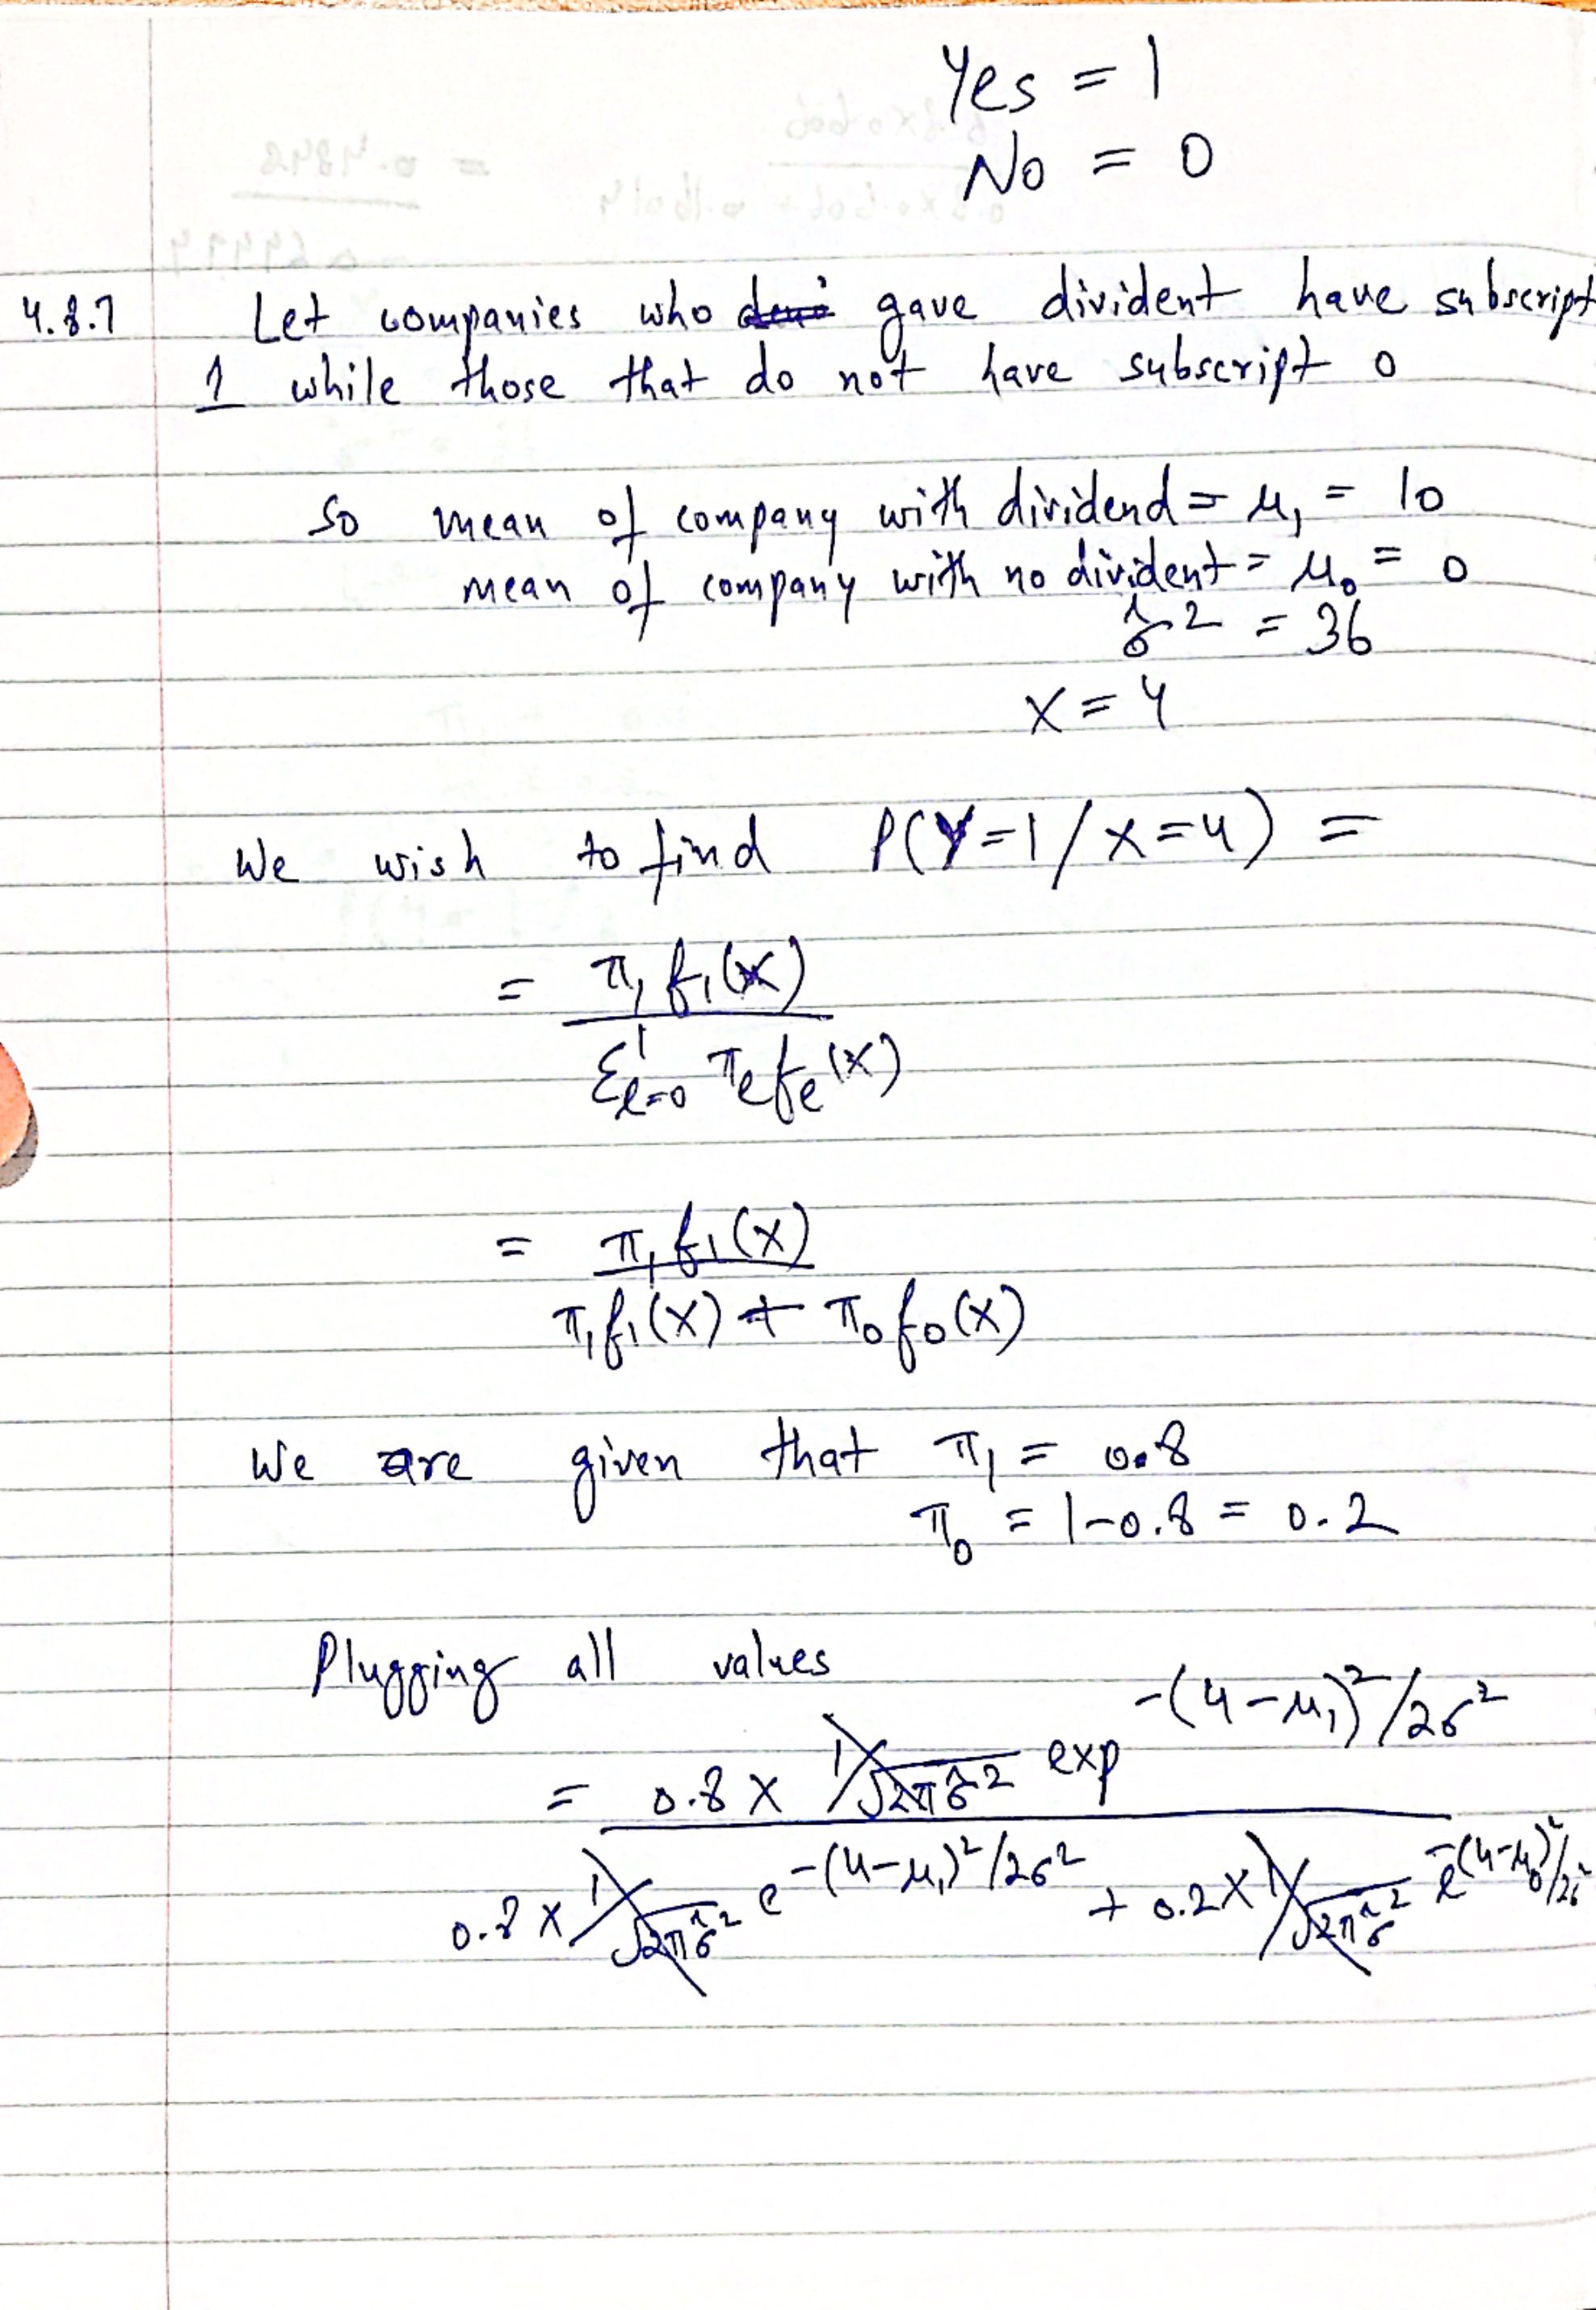 Yes = 1
No = 0
4.8.7 Let companies who gave divident have subscript
1 while those that do not have subscript 0
So mean of company with dividend = μ₁ = 10
mean of company with no divident = μ₀ = 0
σ̂² = 36
X = 4
We wish to find P(Y=1/X=4) =
= π₁f₁(x)
Σ¹ₗ₌₀ πₗfₗ(x)
= π₁f₁(x)
π₁f₁(x) + π₀f₀(x)
We are given that π₁ = 0.8
π₀ = 1-0.8 = 0.2
Plugging all values
= 0.8 × 1/√2πσ̂² exp -(4-μ₁)²/2σ²
0.8 × 1/√2πσ̂² e -(4-μ₁)²/2σ² + 0.2 × 1/√2πσ̂² e -(4-μ₀)²/2σ²